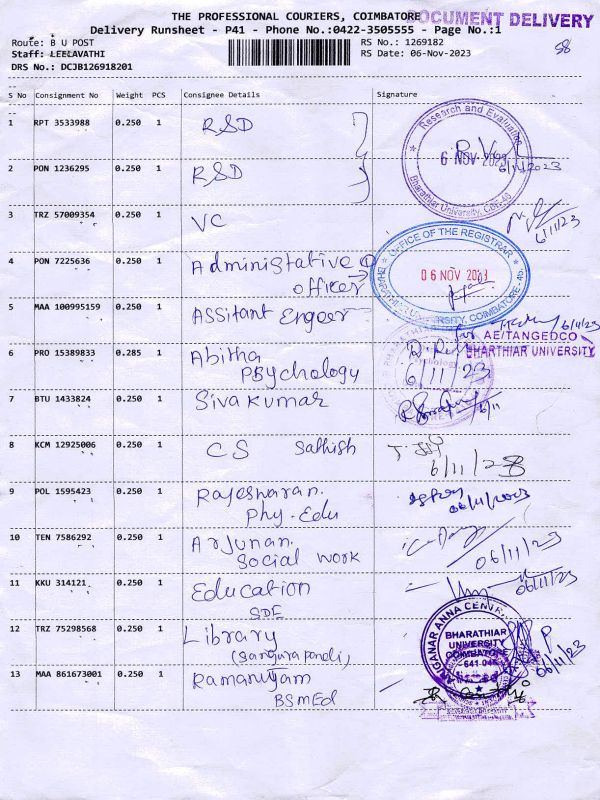 THE PROFESSIONAL COURIERS, COIMBATORE
DOCUMENT DELIVERY
Delivery Runsheet - P41 - Phone No.:0422-3505555 - Page No.:1
Route: B U POST
RS No.: 1269182
58
Staff: LEELAVATHI
RS Date: 06-Nov-2023
DRS No.: DCJB126918201
S No Consignment No Weight PCS Consignee Details Signature
1 RPT 3533988 0.250 1 RSD
Research and Evaluation
6 NOV 2023
6/11/2023
Bharathiar University, CBE-46
2 PON 1236295 0.250 1 RSD
3 TRZ 57009354 0.250 1 VC
6/11/23
4 PON 7225636 0.250 1 Administative
officer
OFFICE OF THE REGISTRAR
06 NOV 2023
BHARATHIAR UNIVERSITY, COIMBATORE - 46
5 MAA 100995159 0.250 1 Assitant Engeer
6/11/23
AE/TANGEDCO
BHARTHIAR UNIVERSITY
6 PRO 15389833 0.285 1 Abitha
PSychology
6/11/23
7 BTU 1433824 0.250 1 Sivakumar
6/11
8 KCM 12925006 0.250 1 CS Sathish
6/11/23
9 POL 1595423 0.250 1 Rajeswaran.
Phy. Edu
06/11/2023
10 TEN 7586292 0.250 1 Arjunan.
Social work
06/11/23
11 KKU 314121 0.250 1 Education
SDE
06/11/23
12 TRZ 75298568 0.250 1 Library
BHARATHIAR
UNIVERSITY
COIMBATORE
641 046
06/11/23
13 MAA 861673001 0.250 1 Ramanujam
BSMEd